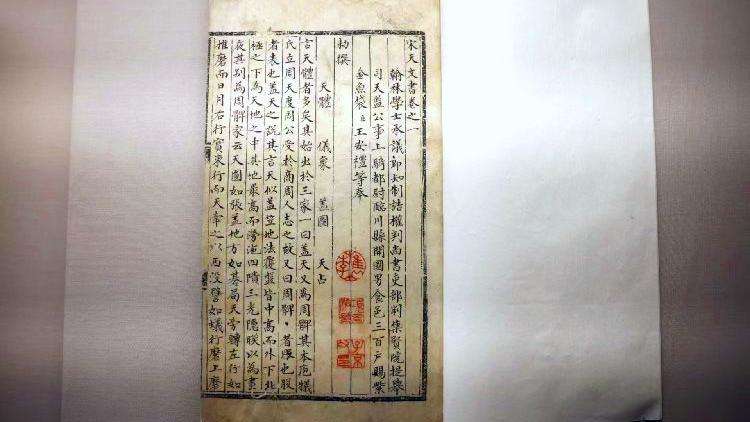 宋天文書卷之一
翰林學士承議郎知制誥權判尚書吏部判集賢院提舉
司天監公事上騎都尉臨川縣開國男食邑三百戶賜紫
金魚袋臣王安禮等奉
勑撰
天體 儀象 蓋圖 天占
言天體者多矣其始出於三家一曰蓋天又為周髀其本庖犧
氏立周天度周公受於商周人志之故又曰周髀、者股也股
者表也蓋天之說其言天似蓋笠地法覆盤皆中高而外下北
極之下為天地之中其地最高而滂沲四隤三光隱映以為晝
夜其別為周髀家云天圓如張蓋地方如碁局天旁轉左行如
推磨而日月右行實東行而天牽之以西沒譬如蟻行磨上磨